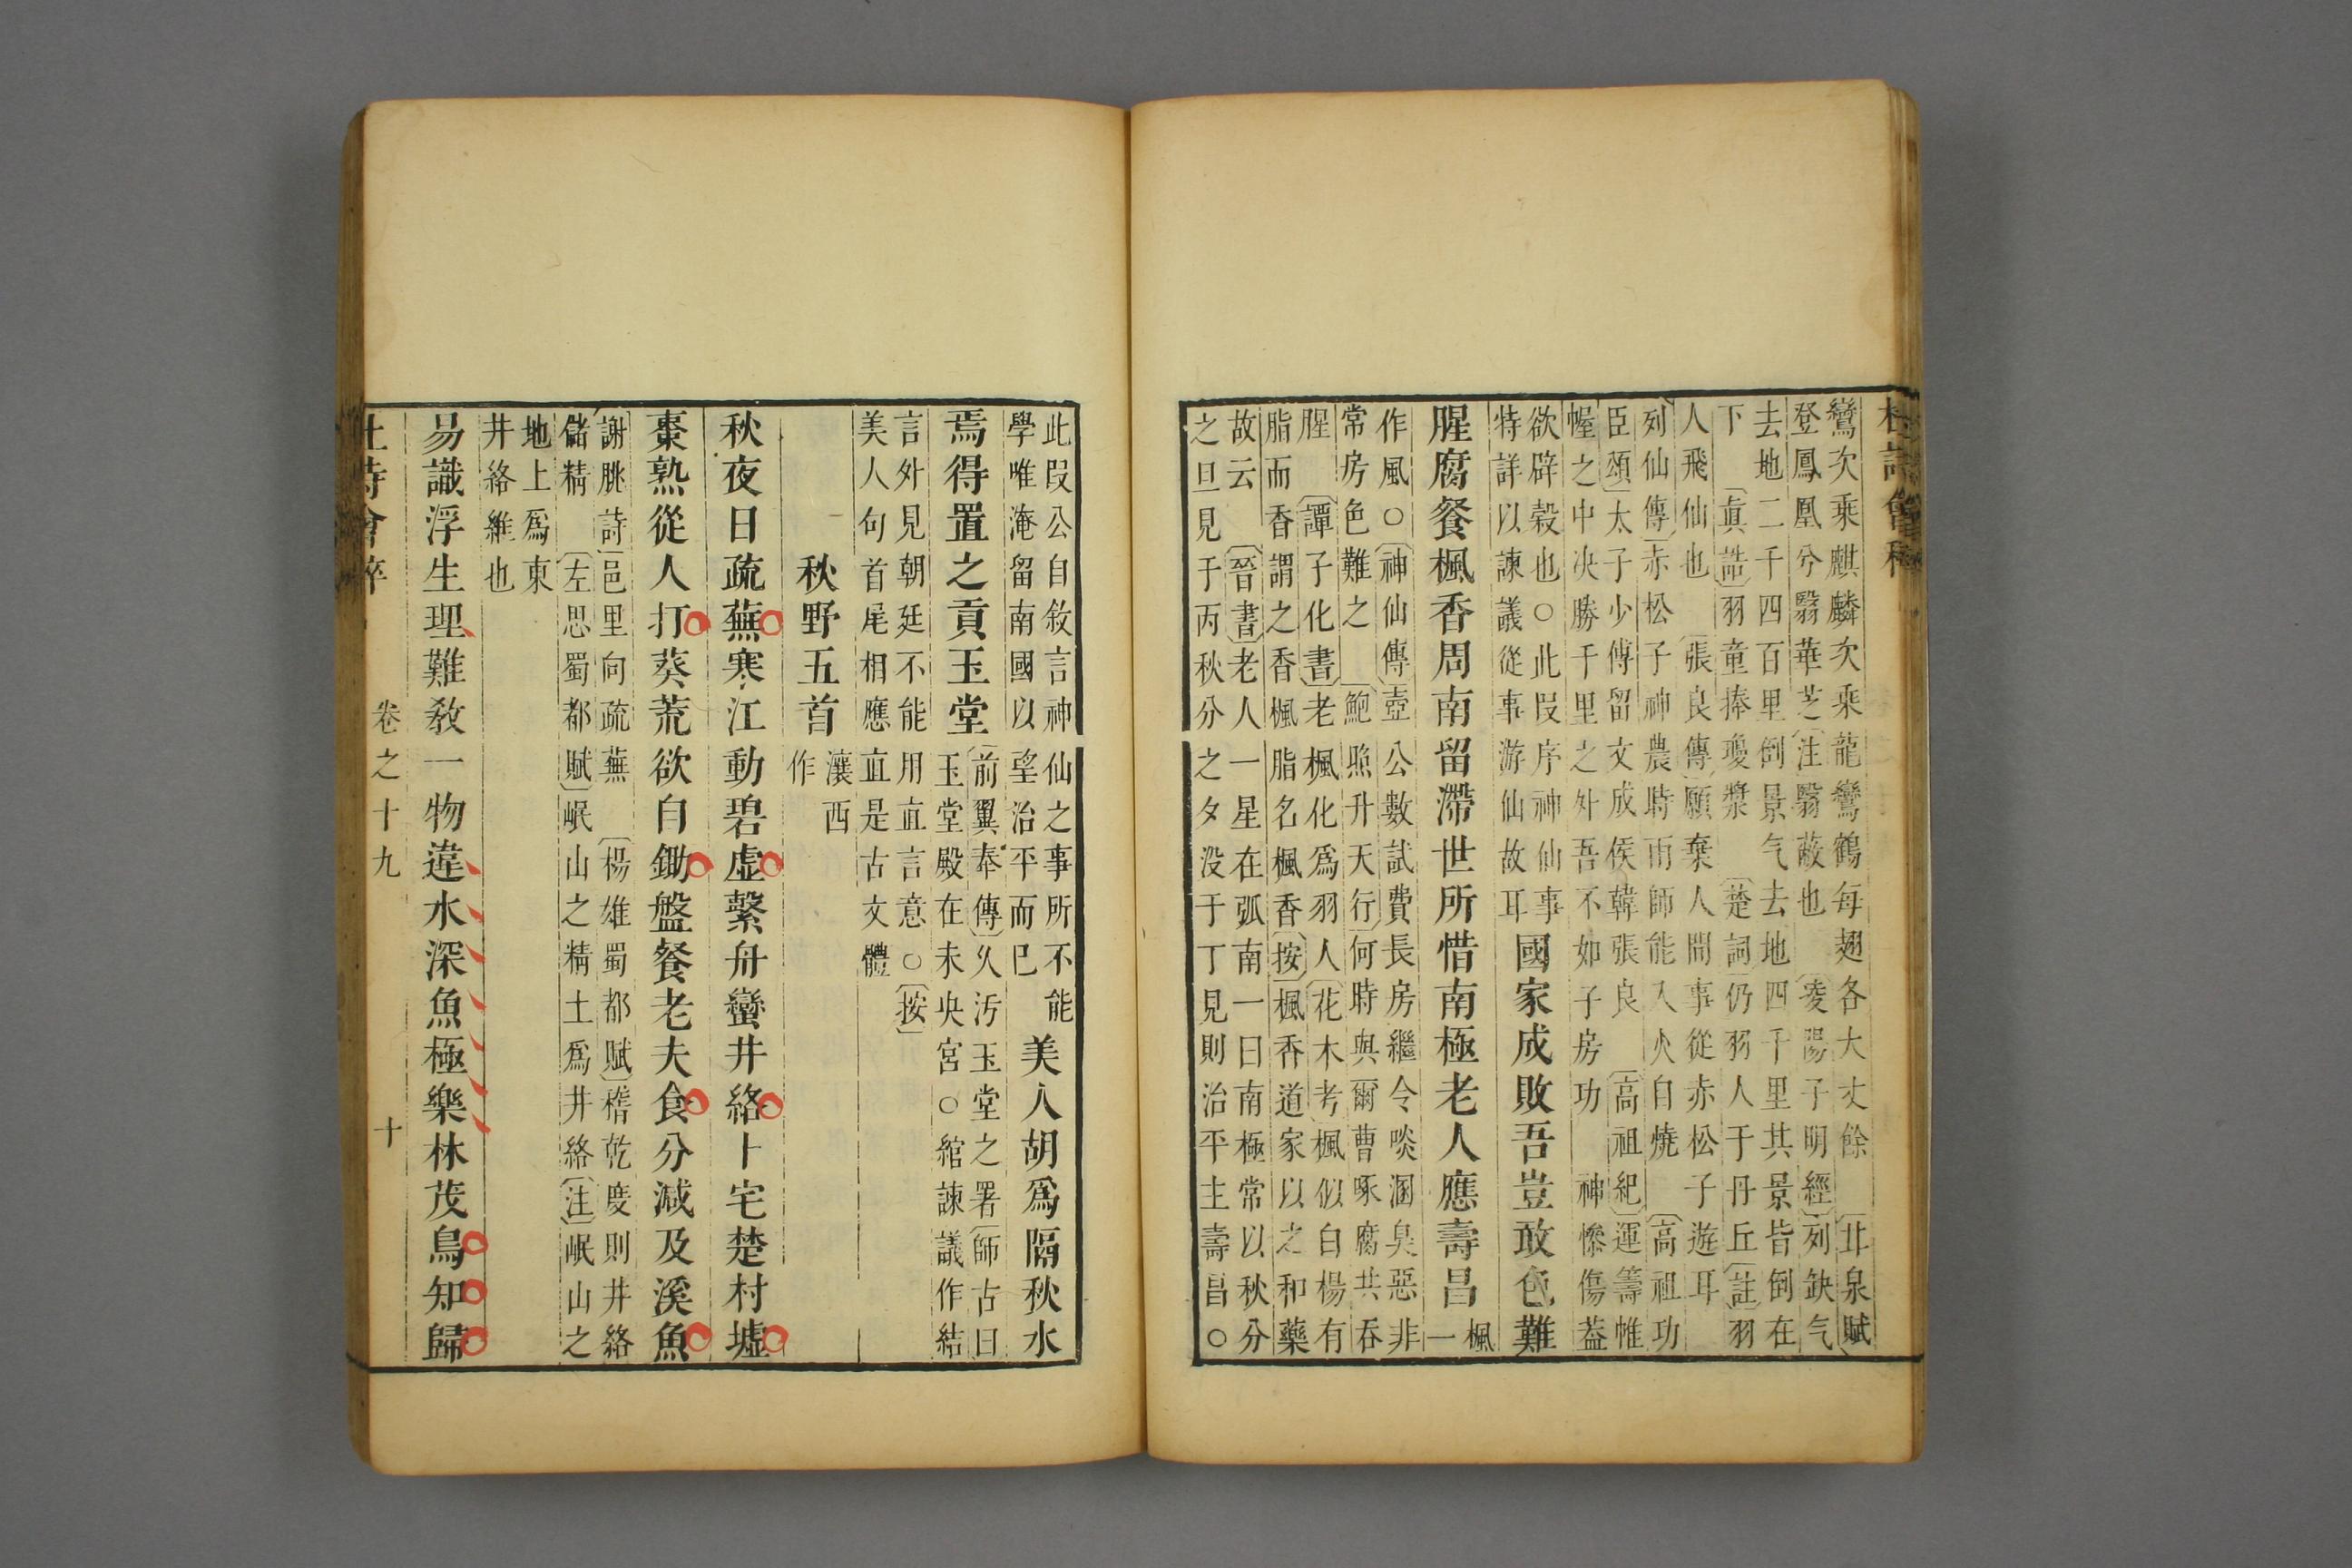 杜詩會稡
鸞次乘麒麟次乘龍鸞鶴每翅各大丈餘 〔北泉賦〕
登鳳凰兮翳華芝〔注〕翳蔽也 〔凌陽子明經〕列缺气
去地二千四百里倒景气去地四千里其景皆倒在
下 〔眞誥〕羽童捧瓊漿 〔楚詞〕仍羽人于丹丘〔註〕羽
人飛仙也 〔張良傳〕願棄人間事從赤松子遊耳
列仙傳〕赤松子神農時雨師能入火自燒 〔高祖功
臣頌〕太子少傅留文成侯韓張良 〔高祖紀〕運籌帷
幄之中决勝千里之外吾不如子房功 神慘傷葢
欲辟榖也○此段序神仙事
特詳以諫議從事游仙故耳
國家成敗吾豈敢色難
腥腐餐楓香周南留滯世所惜南極老人應壽昌
楓
一
作風○〔神仙傳〕壺公數試費長房繼令啖溷臭惡非
常房色難之 〔鮑照升天行〕何時與爾曹啄腐共吞
腥 〔譚子化書〕老楓化爲羽人〔花木考〕楓似白楊有
脂而香謂之香楓脂名楓香〔按〕楓香道家以之和藥
故云 〔晉書〕老人一星在弧南一曰南極常以秋分
之旦見于丙秋分之夕没于丁見則治平主壽昌○
此段公自敘言神仙之事所不能
學唯淹留南國以望治平而已
美人胡爲隔秋水
焉得置之貢玉堂
〔前翼奉傳〕久汚玉堂之署〔師古曰
玉堂殿在未央宮○綰諫議作結
言外見朝廷不能用直言意○〔按〕
美人句首尾相應直是古文體
秋野五首
瀼西
作
秋夜日疏蕪寒江動碧虛繫舟蠻井絡卜宅楚村墟
棗熟從人打葵荒欲自鋤盤餐老夫食分減及溪魚
謝脁詩〕邑里向疏蕪 〔楊雄蜀都賦〕稽乾度則井絡
儲精 〔左思蜀都賦〕岷山之精土爲井絡〔注〕岷山之
地上爲東
井絡維也
易識浮生理難敎一物違水深魚極樂林茂鳥知歸
杜詩會稡
卷之十九
十